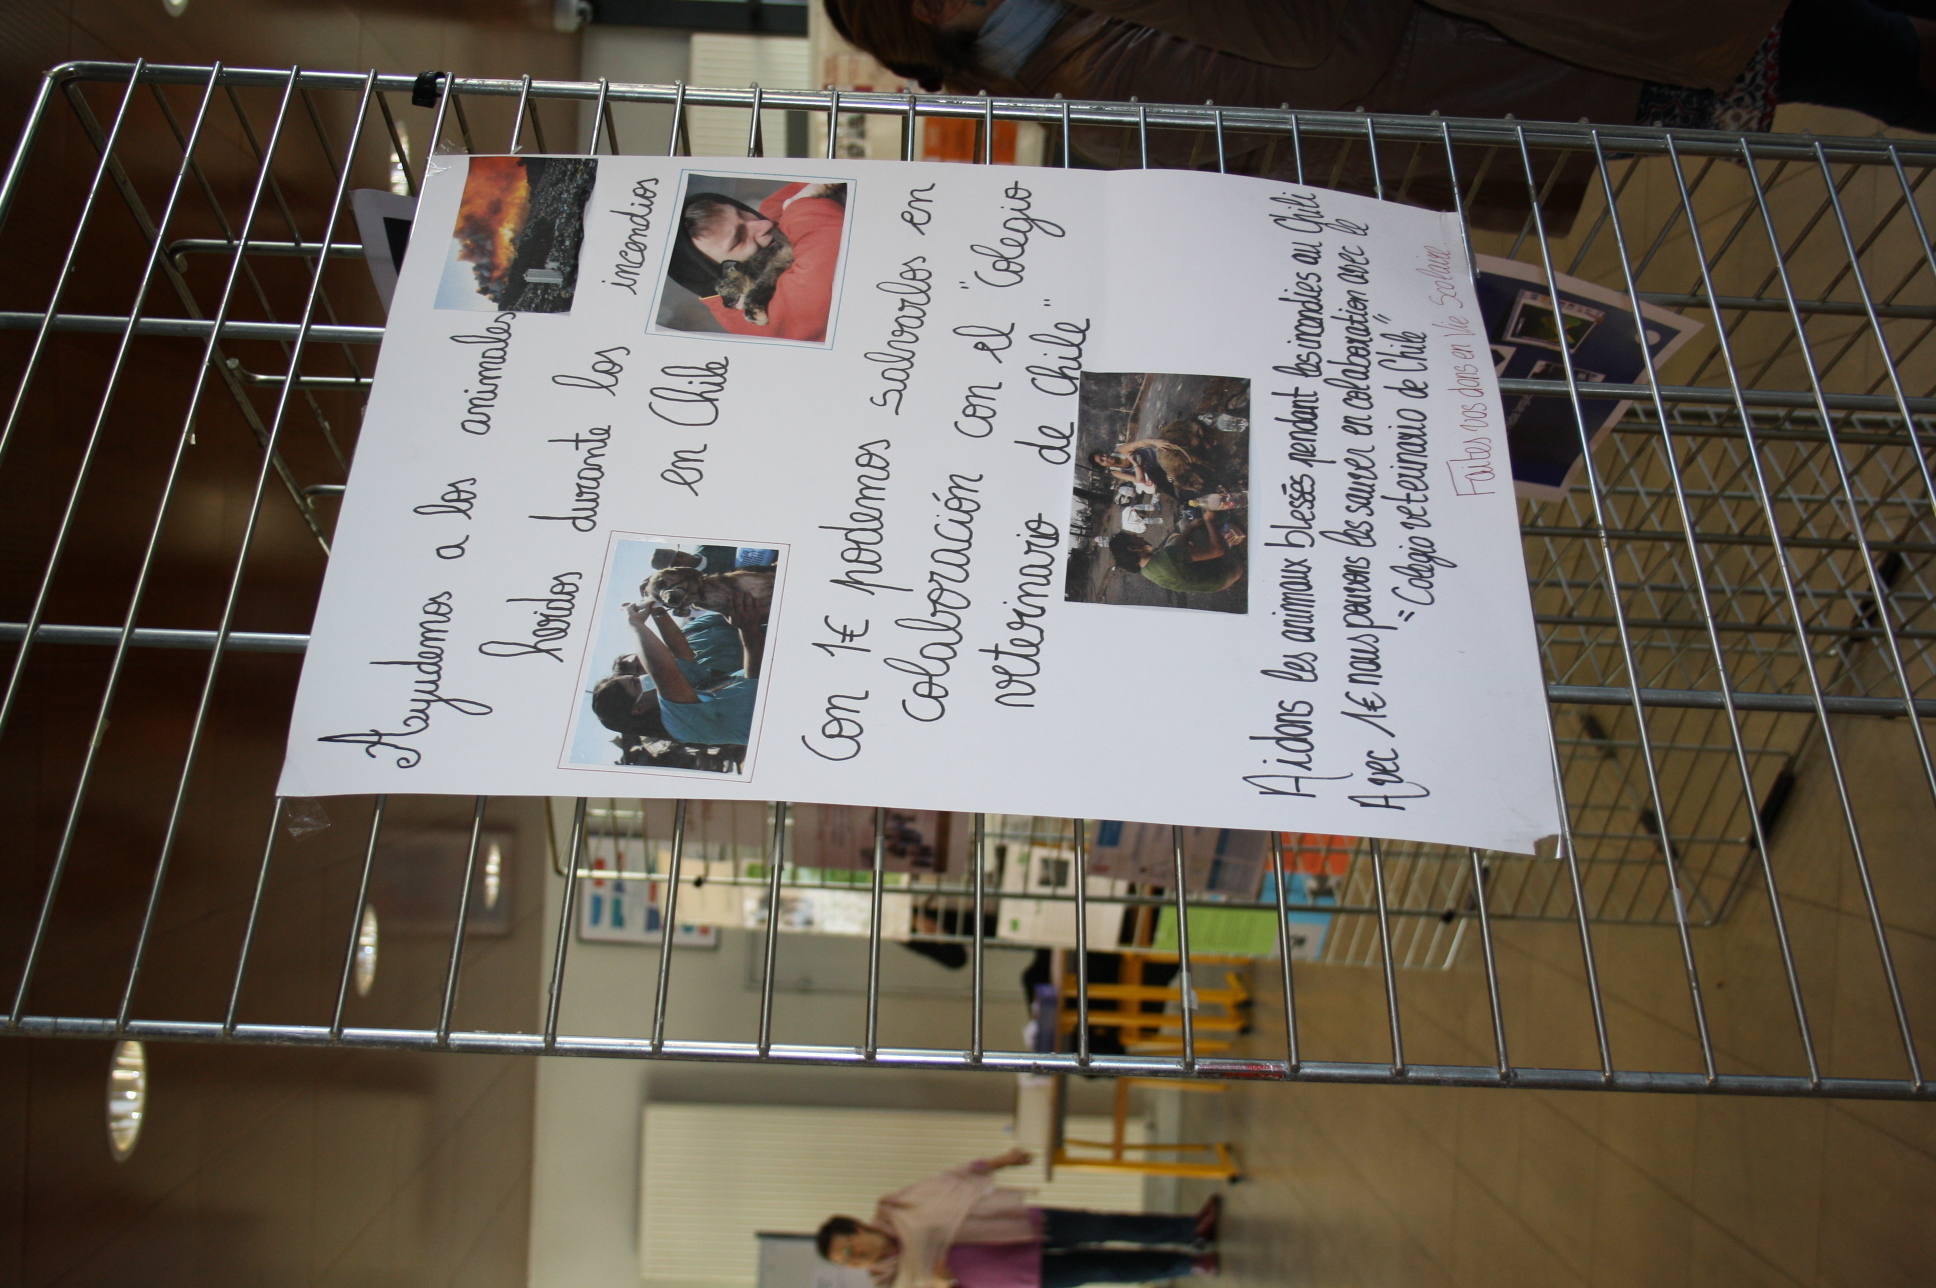 Ayudemos a los animales
heridos durante los incendios
en Chile
Con 1€ podemos salvarlos en
colaboración con el "Colegio
veterinario de Chile"
Aidons les animaux blessés pendant les incendies au Chili
Avec 1€ nous pouvons les sauver en colaboration avec le
"Colegio veterinario de Chile"
Faites vos dons en Vie Scolaire.